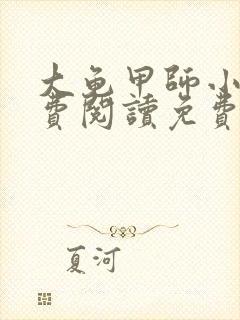 大龟甲師小
費閱讀免費
夏河